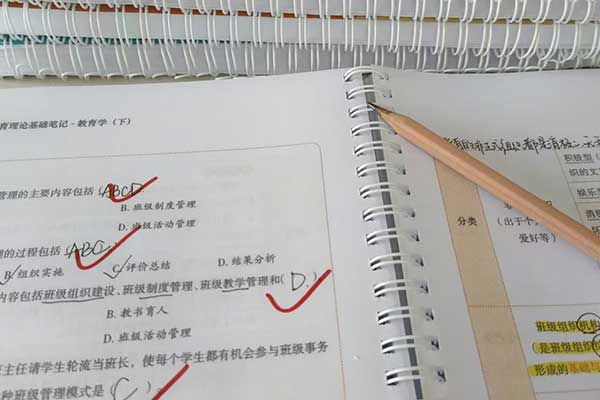 育理论基础笔记-教育学（下）
管理的主要内容包括 ABCD
B. 班级制度管理
D. 班级活动管理
理的过程包括 ABC
B 组织实施 C 评价总结 D. 结果分析
内容包括班级组织建设、班级制度管理、班级教学管理和( D. )
B. 教书育人
D. 班级活动管理
班主任请学生轮流当班长，使每个学生都有机会参与班级事务
种班级管理模式是 ( C )。
分类
(出于个
爱好等)
积极型（
织的文
娱乐
消
班级组织机构
是班级组织
形成的基础与